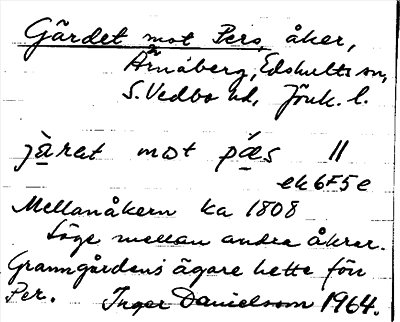 Gärdet mot Pers, åker,
Årnäberg, Edshults sn,
S. Vedbo hd, Jönk. l.
jàrat mot pǽs ||
ek 6F5e
Mellanåkern ka 1808
Låge mellan andra åkrar.
Granngårdens ägare hette förr
Per. Inger Danielsson 1964.